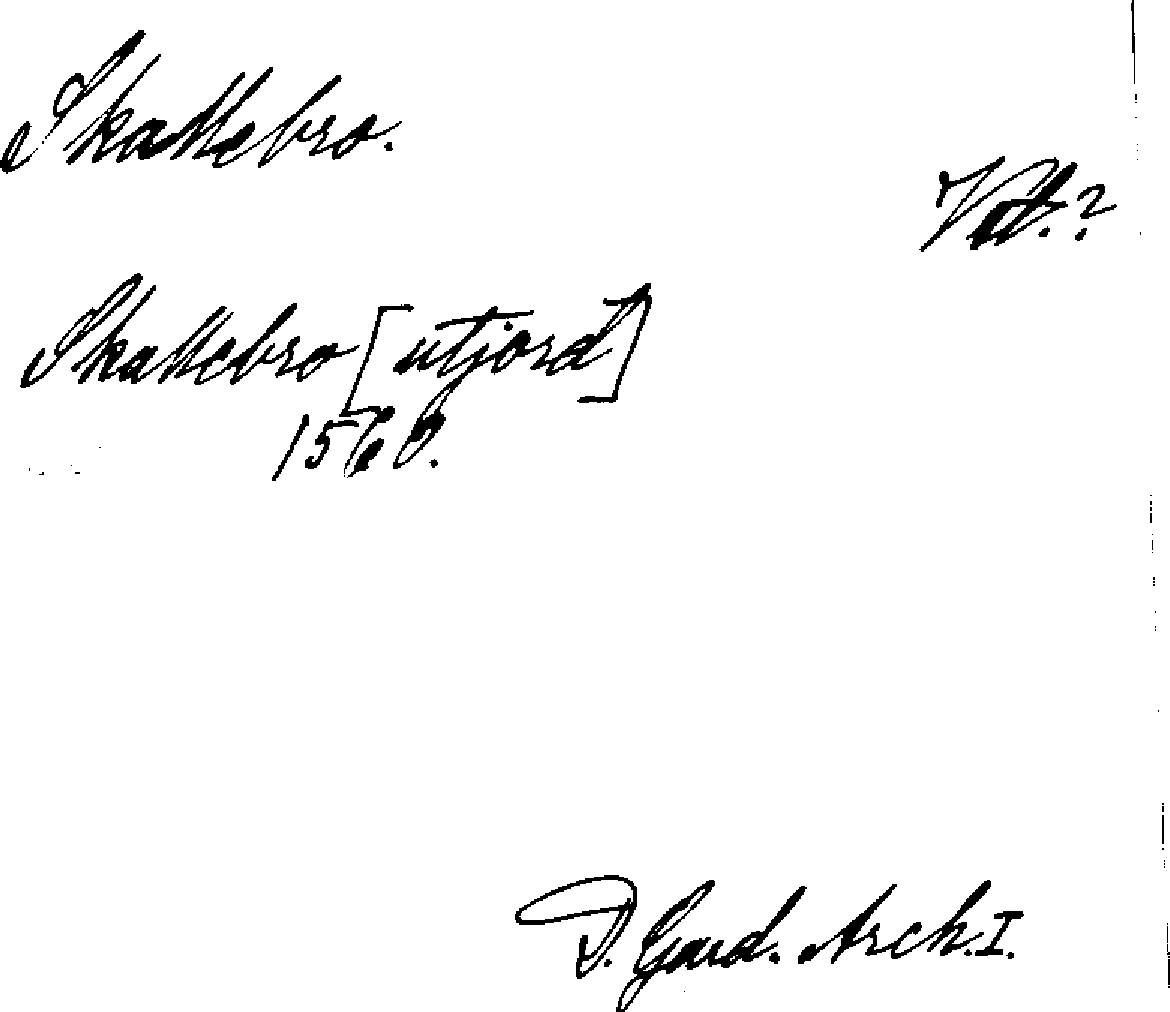 Skallebro.
Vät.?
Skallebro [utjord]
1560.
D. Gard. Arch. I.